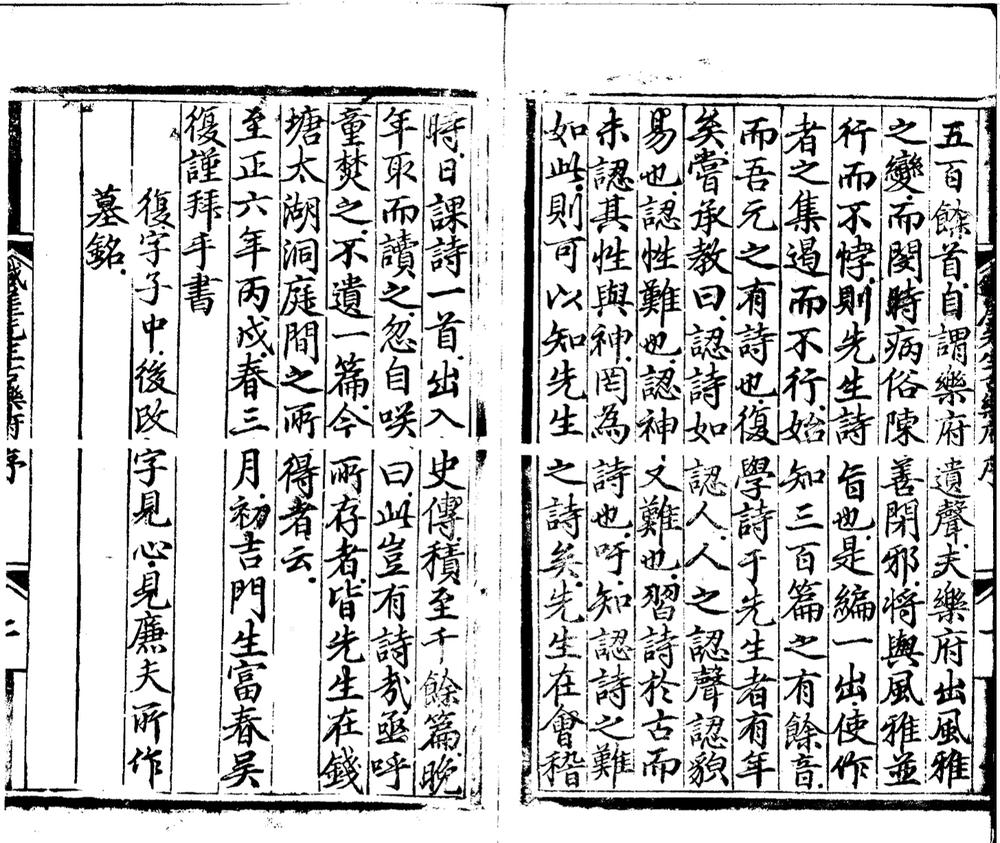 五百餘首自謂樂府遺聲夫樂府出風雅
之變而閔時病俗陳善閉邪將與風雅並
行而不悖則先生詩旨也是編一出使作
者之集遏而不行始知三百篇之有餘音
而吾元之有詩也復學詩于先生者有年
矣嘗承教曰認詩如認人人之認聲認貌
易也認性難也認神又難也習詩於古而
未認其性與神罔為詩也吁知認詩之難
如此則可以知先生之詩矣先生在會稽
時日課詩一首出入史傳積至千餘篇晚
年取而讀之忽自咲曰此豈有詩哉亟呼
童焚之不遺一篇今所存者皆先生在錢
塘太湖洞庭間之所得者云
至正六年丙戌春三月初吉門生富春吳
復謹拜手書
復字子中後改字見心見廉夫所作
墓銘